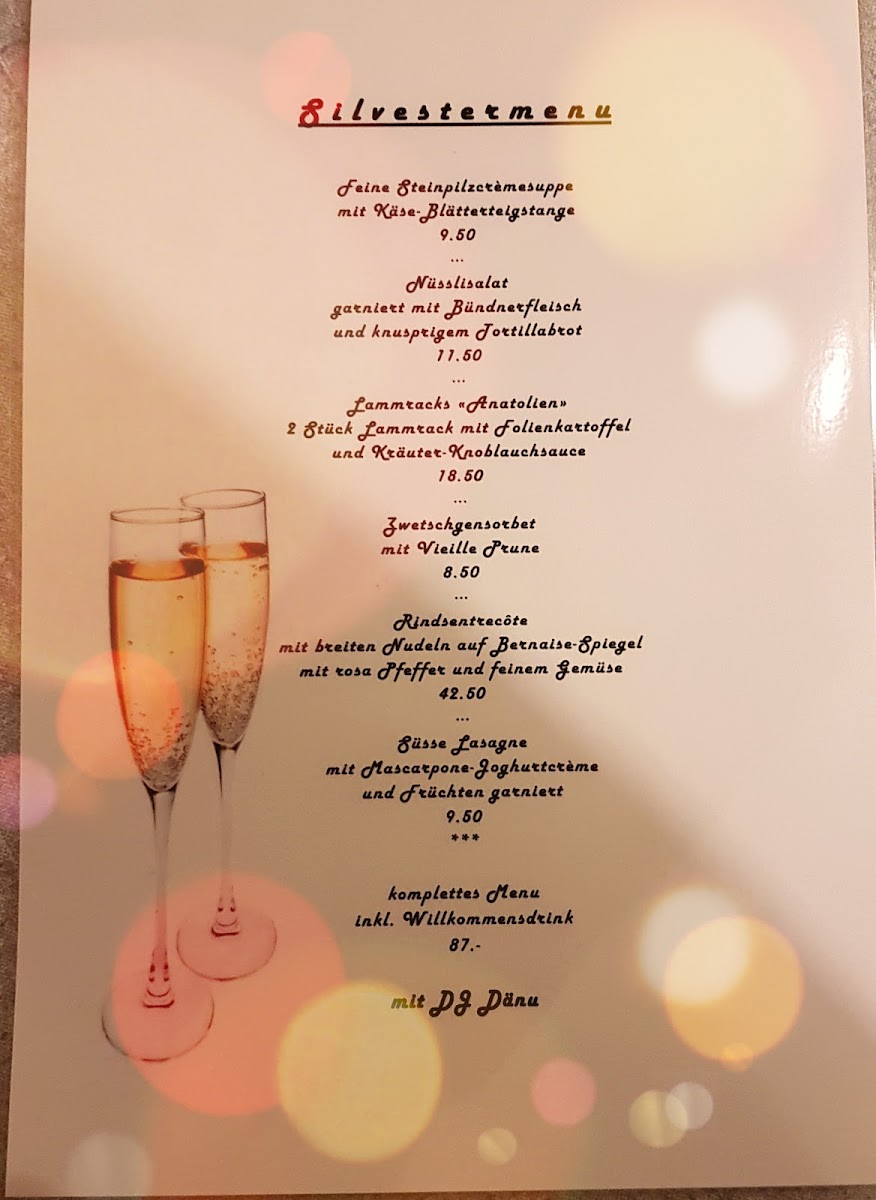 Silvestermenu
Feine Steinpilzcrèmesuppe
mit Käse-Blätterteigstange
9.50
...
Nüsslisalat
garniert mit Bündnerfleisch
und knusprigem Tortillabrot
11.50
...
Lammracks «Anatolien»
2 Stück Lammrack mit Folienkartoffel
und Kräuter-Knoblauchsauce
18.50
...
Zwetschgensorbet
mit Vieille Prune
8.50
...
Rindsentrecôte
mit breiten Nudeln auf Bernaise-Spiegel
mit rosa Pfeffer und feinem Gemüse
42.50
...
Süsse Lasagne
mit Mascarpone-Joghurtcrème
und Früchten garniert
9.50
***
komplettes Menu
inkl. Willkommensdrink
87.-
mit DJ Dänu